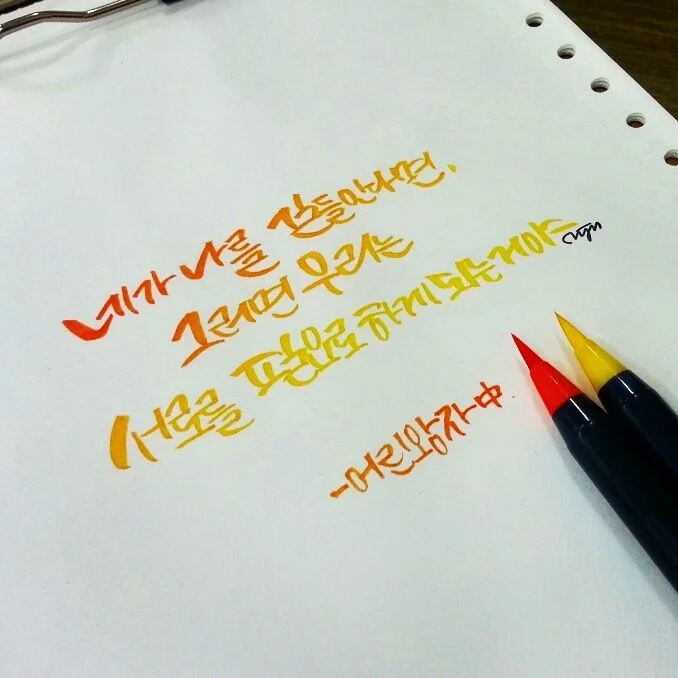 네가 나를 길들인다면,
그러면 우리는
서로를 필요로 하게 되는거야
-어린왕자 中